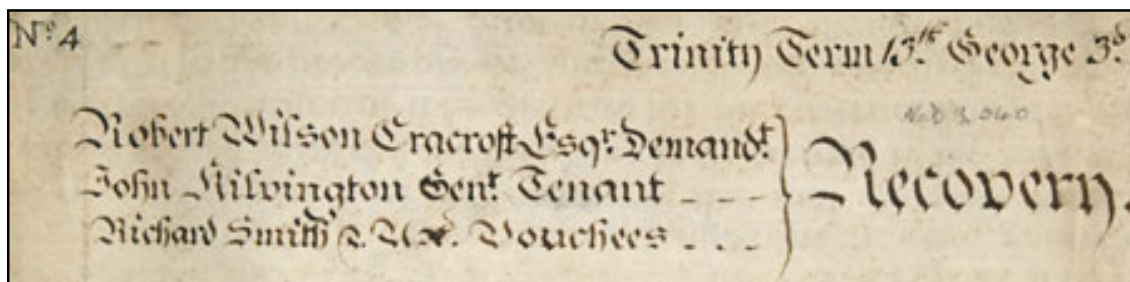 Nº. 4
Trinity Term 13th. George 3d.
Robert Wilson Cracroft Esqr. Demandt.
John Kilvington Gent. Tenant - - -
Richard Smith & Ux. Vouchees - - -
Recovery.